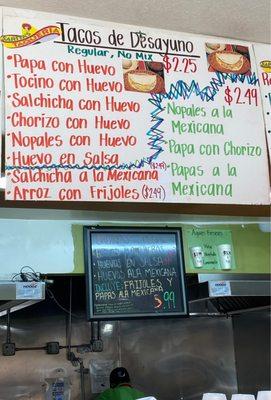 Tacos de Desayuno
Regular, No Mix
$2.25
Papa con Huevo
Tocino con Huevo
Salchicha con Huevo
Chorizo con Huevo
Nopales con Huevo
Huevo en Salsa
Salchicha a la Mexicana
Arroz con Frijoles ($2.49)
$2.49
Nopales a la
Mexicana
Papa con Chorizo
Papas a la
Mexicana
HUEVOS EN SALSA
HUEVOS ALA MEXICANA
INCLUYE: FRIJOLES Y
PAPAS ALA MEXICANA
5.99
Aguas Frescas